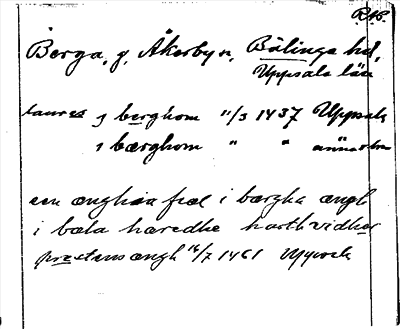 RAP.
Berga, g, Åkerby sn, Bälinge hd,
Uppsala län
laurens j berghom 11/3 1437 Uppsala
j bærghom " " ännu
een ænghia fræl i bærgha ængh
i bæla hæredhe harth vidher
præstens ængh 16/7 1461 Uppsala